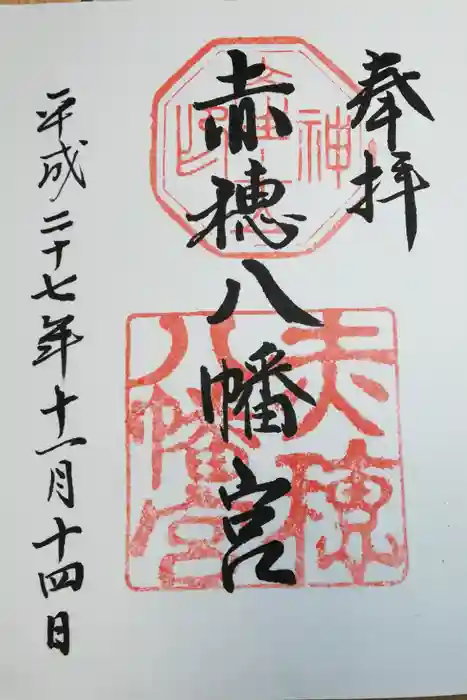 奉拝
赤穂八幡宮
平成二十七年十一月十四日
赤穂
八幡宮